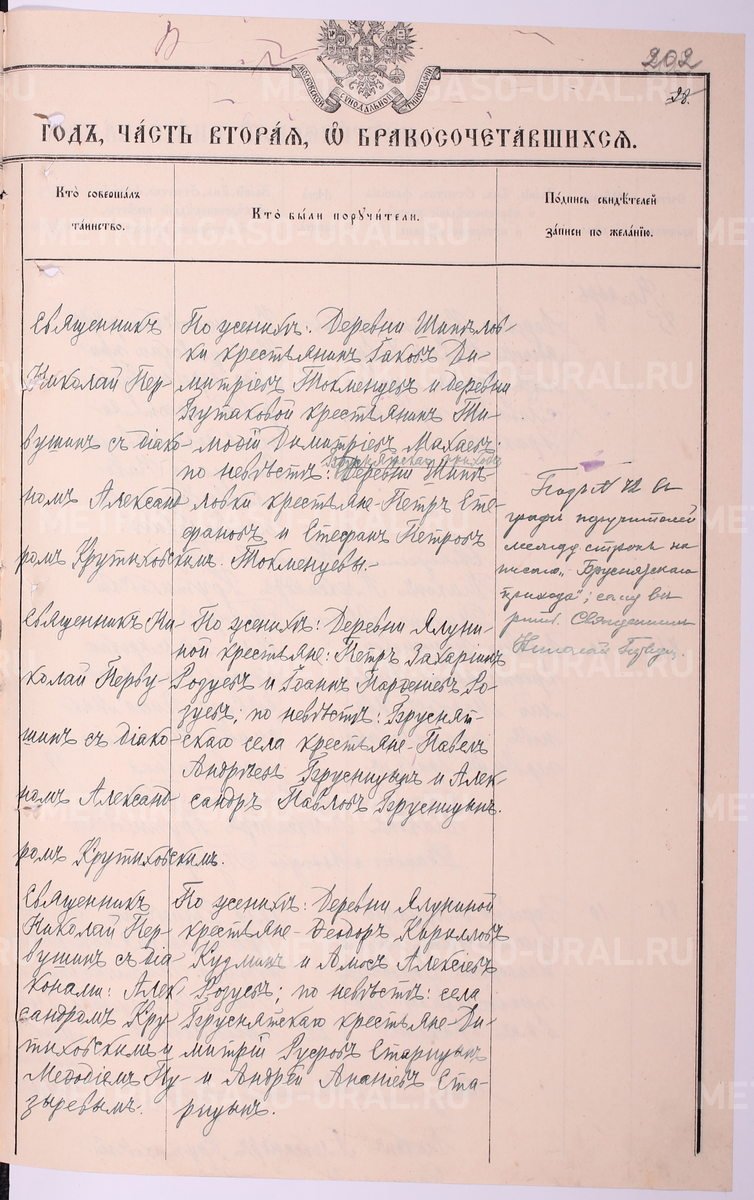 202
28.
МОСКОВСКОЙ СѴНОДАЛЬНОЙ ТИПОГРАФІИ
ГОДЪ, ЧАСТЬ ВТОРАЯ, Ѡ БРАКОСОЧЕТАВШИХСЯ.
Кто совершалъ
таинство.
Кто были поручители.
Подпись свидѣтелей
записи по желанію.
Священникъ
Николай Пер-
вушинъ съ діако-
номъ Александ-
ромъ Крутиховскимъ.
По женихѣ: Деревни Шипѣлов-
ки крестьянинъ Іаковъ Ди-
митріевъ Токменцевъ и деревни
Бутаковой крестьянинъ Ти-
моѳій Димитріевъ Махаевъ;
Бруснятскаго прихода
по невѣстѣ: Деревни Шипѣ-
ловки крестьяне-Петръ Сте-
фановъ и Стефанъ Петровъ
Токменцевы.-
Подъ № 42 въ
графѣ поручителей
между строкъ на-
писано „Бруснятскаго
прихода“; сему вѣ-
рить. Священникъ
Николай
Священникъ Ни-
колай Перву-
шинъ съ діако-
номъ Александ-
ромъ Крутиховскимъ.
По женихѣ: Деревни Ялуни-
ной крестьяне: Петръ Захаріинъ
Розуевъ и Іоаннъ Парѳеніевъ Ро-
зуевъ; по невѣстѣ: Бруснят-
скаго села крестьяне-Павелъ
Андреевъ Брусницынъ и Алек-
сандръ Павловъ Брусницынъ.
Священникъ
Николай Пер-
вушинъ съ діа-
конами: Алек-
сандромъ Кру-
тиховскимъ и
Меѳодіемъ Пу-
зыревымъ.
По женихѣ: Деревни Ялуниной
крестьяне-Ѳеодоръ Кирилловъ
Кузминъ и Амосъ Алексіевъ
Розуевъ; по невѣстѣ: села
Бруснятскаго крестьяне-Ди-
митрій Старицынъ
и Андрей Ананіевъ Ста-
рицынъ.